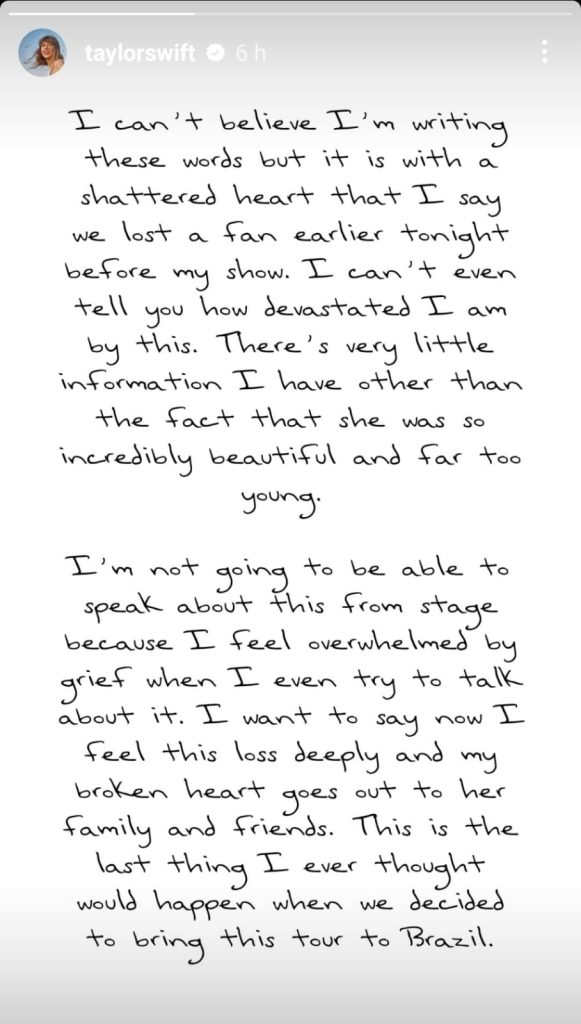 taylorswift 6 h
I can't believe I'm writing
these words but it is with a
shattered heart that I say
we lost a fan earlier tonight
before my show. I can't even
tell you how devastated I am
by this. There's very little
information I have other than
the fact that she was so
incredibly beautiful and far too
young.
I'm not going to be able to
speak about this from stage
because I feel overwhelmed by
grief when I even try to talk
about it. I want to say now I
feel this loss deeply and my
broken heart goes out to her
family and friends. This is the
last thing I ever thought
would happen when we decided
to bring this tour to Brazil.